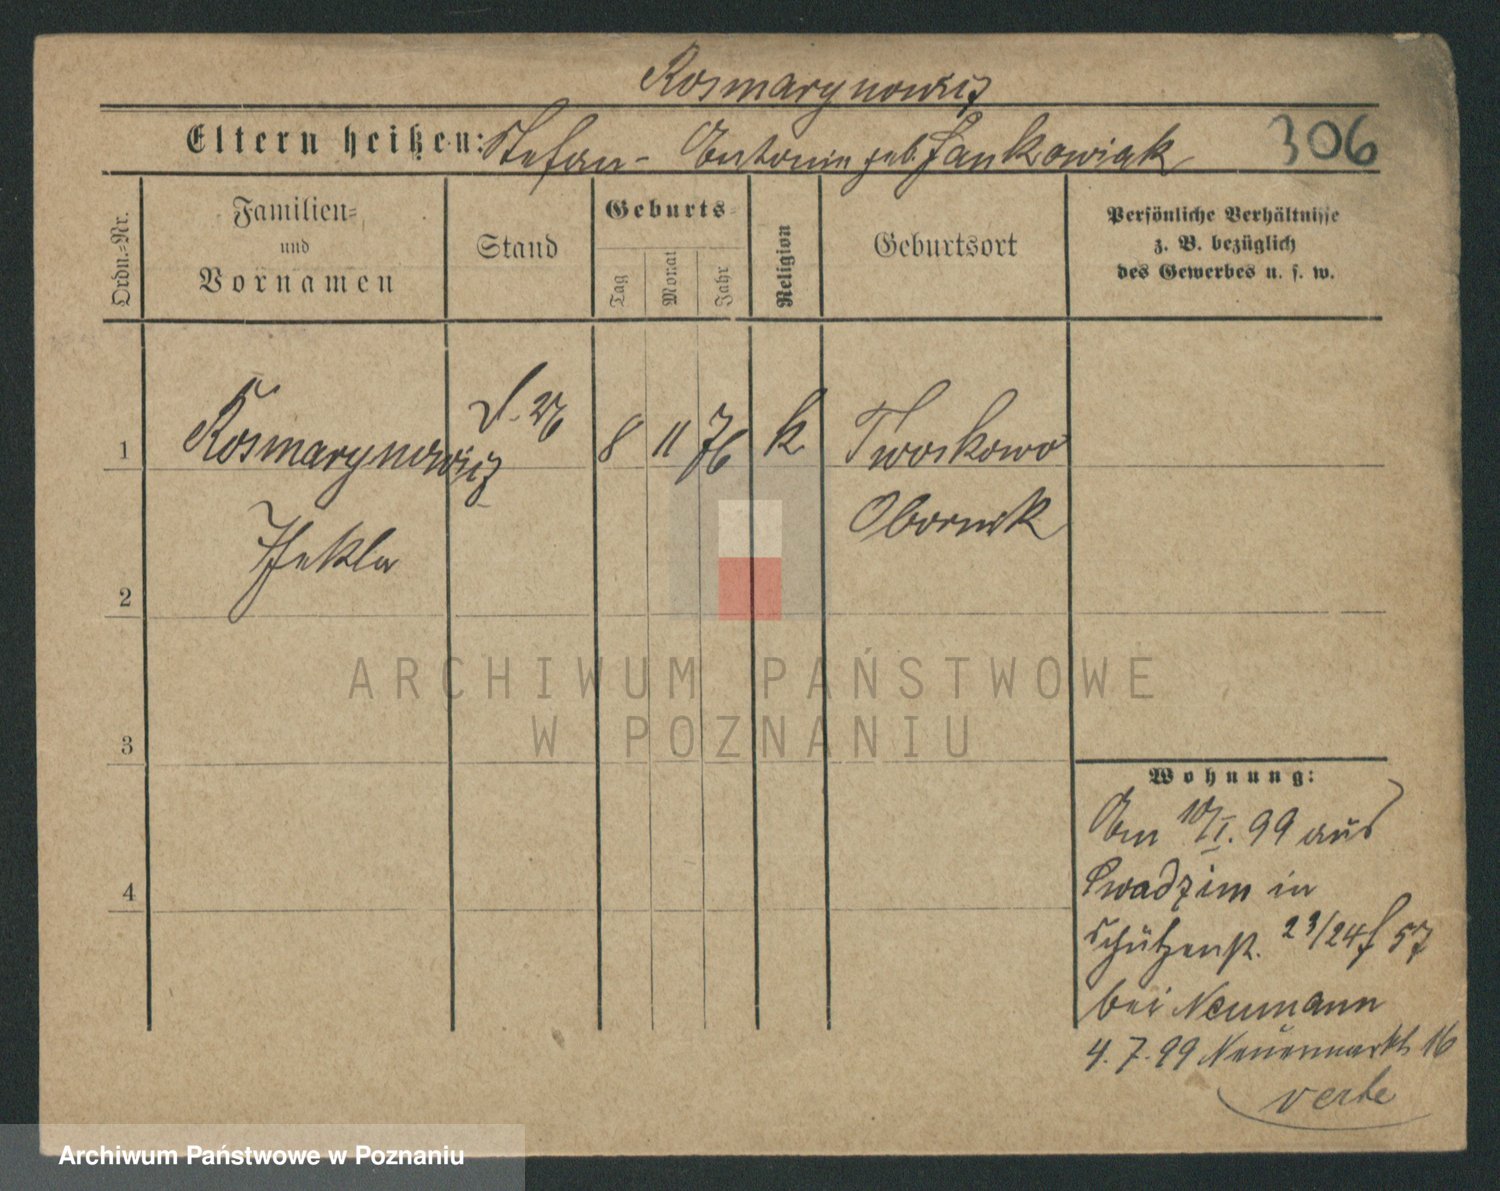 Rosmarynowicz
Eltern heißen: Stefan - Antonie geb. Jankowiak 306
Ordn.-Nr.
Familien-
und
Vornamen
Stand
Geburts-
Tag
Monat
Jahr
Religion
Geburtsort
Persönliche Verhältnisse
z. B. bezüglich
des Gewerbes u. s. w.
1 Rosmarynowicz 8 11 76 k Twoskowo
Obornik
Thekla
2
3
4
ARCHIWUM PAŃSTWOWE
W POZNANIU
Wohnung:
Am 10/I. 99 aus
Swadzim in
Schützenst. 23/24 57
bei Neumann
4. 7. 99 Neuermarkt 16
verte
Archiwum Państwowe w Poznaniu